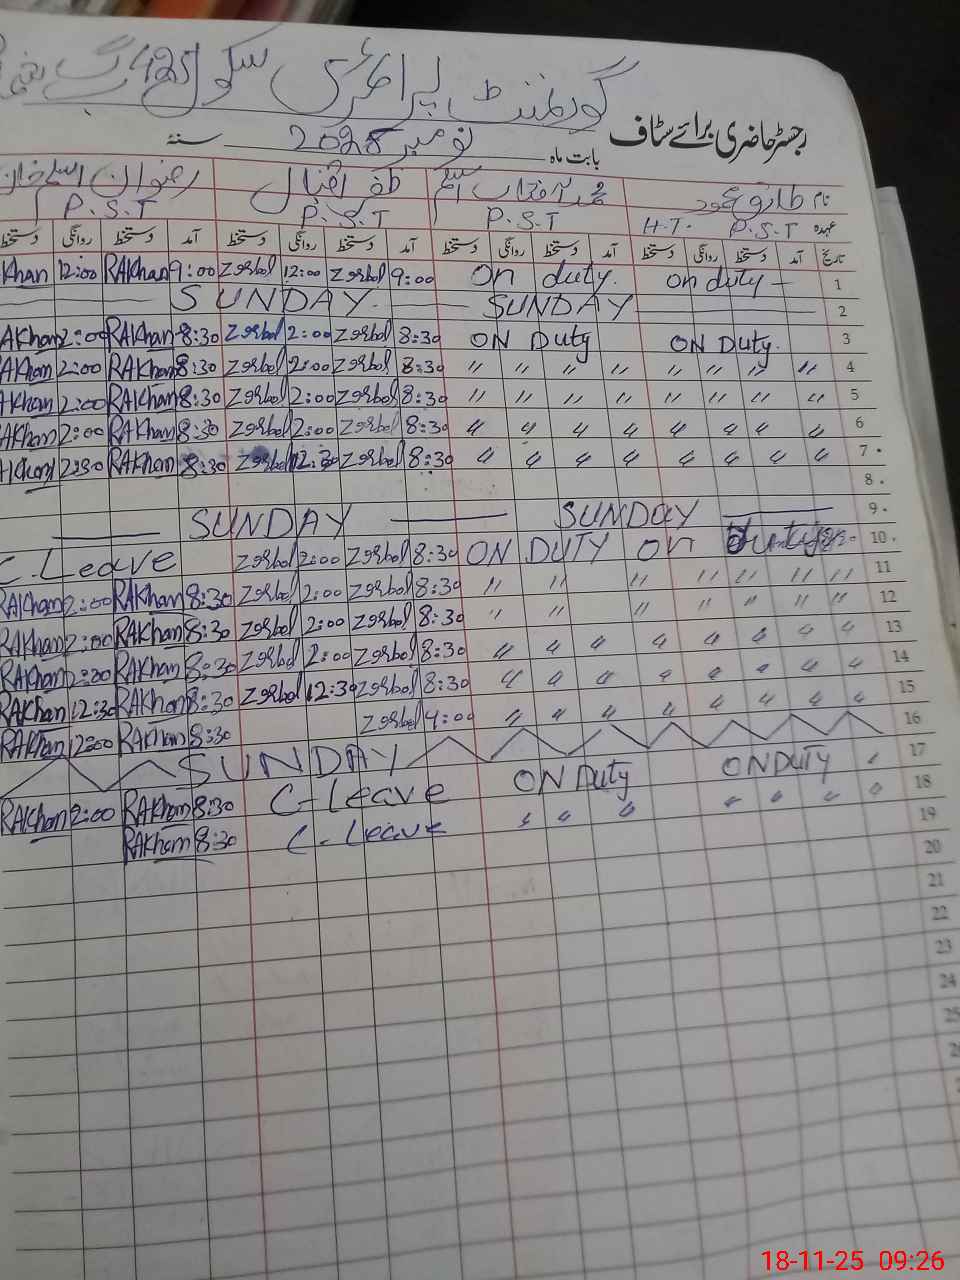 گورنمنٹ پرائمری سکول 425 گ ب
رجسٹر حاضری برائے سٹاف
بابت ماہ نومبر 2025 سنہ
نام طارق محمود محمد آفتاب اسلم ظفر اقبال رضوان اسلم خان
عہدہ P.S.T H.T. P.S.T P.S.T P.S.T
تاریخ آمد دستخط روانگی دستخط آمد دستخط روانگی دستخط آمد دستخط روانگی دستخط آمد دستخط روانگی دستخط
Khan 12:00 RAKhan 9:00 Zafarbal 12:00 Zafarbal 9:00 on duty. on duty 1
SUNDAY SUNDAY 2
AKhan 2:00 RAKhan 8:30 Zafarbal 2:00 Zafarbal 8:30 ON Duty ON Duty. 3
AKhan 2:00 RAKhan 8:30 Zafarbal 2:00 Zafarbal 8:30 " " " " " " " " 4
AKhan 2:00 RAKhan 8:30 Zafarbal 2:00 Zafarbal 8:30 " " " " " " " " 5
AKhan 2:00 RAKhan 8:30 Zafarbal 2:00 Zafarbal 8:30 " " " " " " " " 6
AKhan RAKhan 8:30 Zafarbal 12:30 Zafarbal 8:30 " " " " " " " " 7
8
SUNDAY SUNDAY 9
C-Leave Zafarbal 2:00 Zafarbal 8:30 ON DUTY on duty 10
RAKhan 2:00 RAKhan 8:30 Zafarbal 2:00 Zafarbal 8:30 " " " " " " " 11
RAKhan 2:00 RAKhan 8:30 Zafarbal 2:00 Zafarbal 8:30 " " " " " " " 12
RAKhan 2:00 RAKhan 8:30 Zafarbal 2:00 Zafarbal 8:30 " " " " " " " " 13
RAKhan 12:30 RAKhan 8:30 Zafarbal 12:30 Zafarbal 8:30 " " " " " " " " 14
RAKhan 12:00 RAKhan 8:30 Zafarbal 9:00 " " " " " " " " 15
SUNDAY 16
RAKhan 2:00 RAKhan 8:30 C-Leave ON Duty ON DUTY " 17
RAKham 8:30 C-Leave " " " " " " " 18
19
20
21
22
23
24
25
18-11-25 09:26